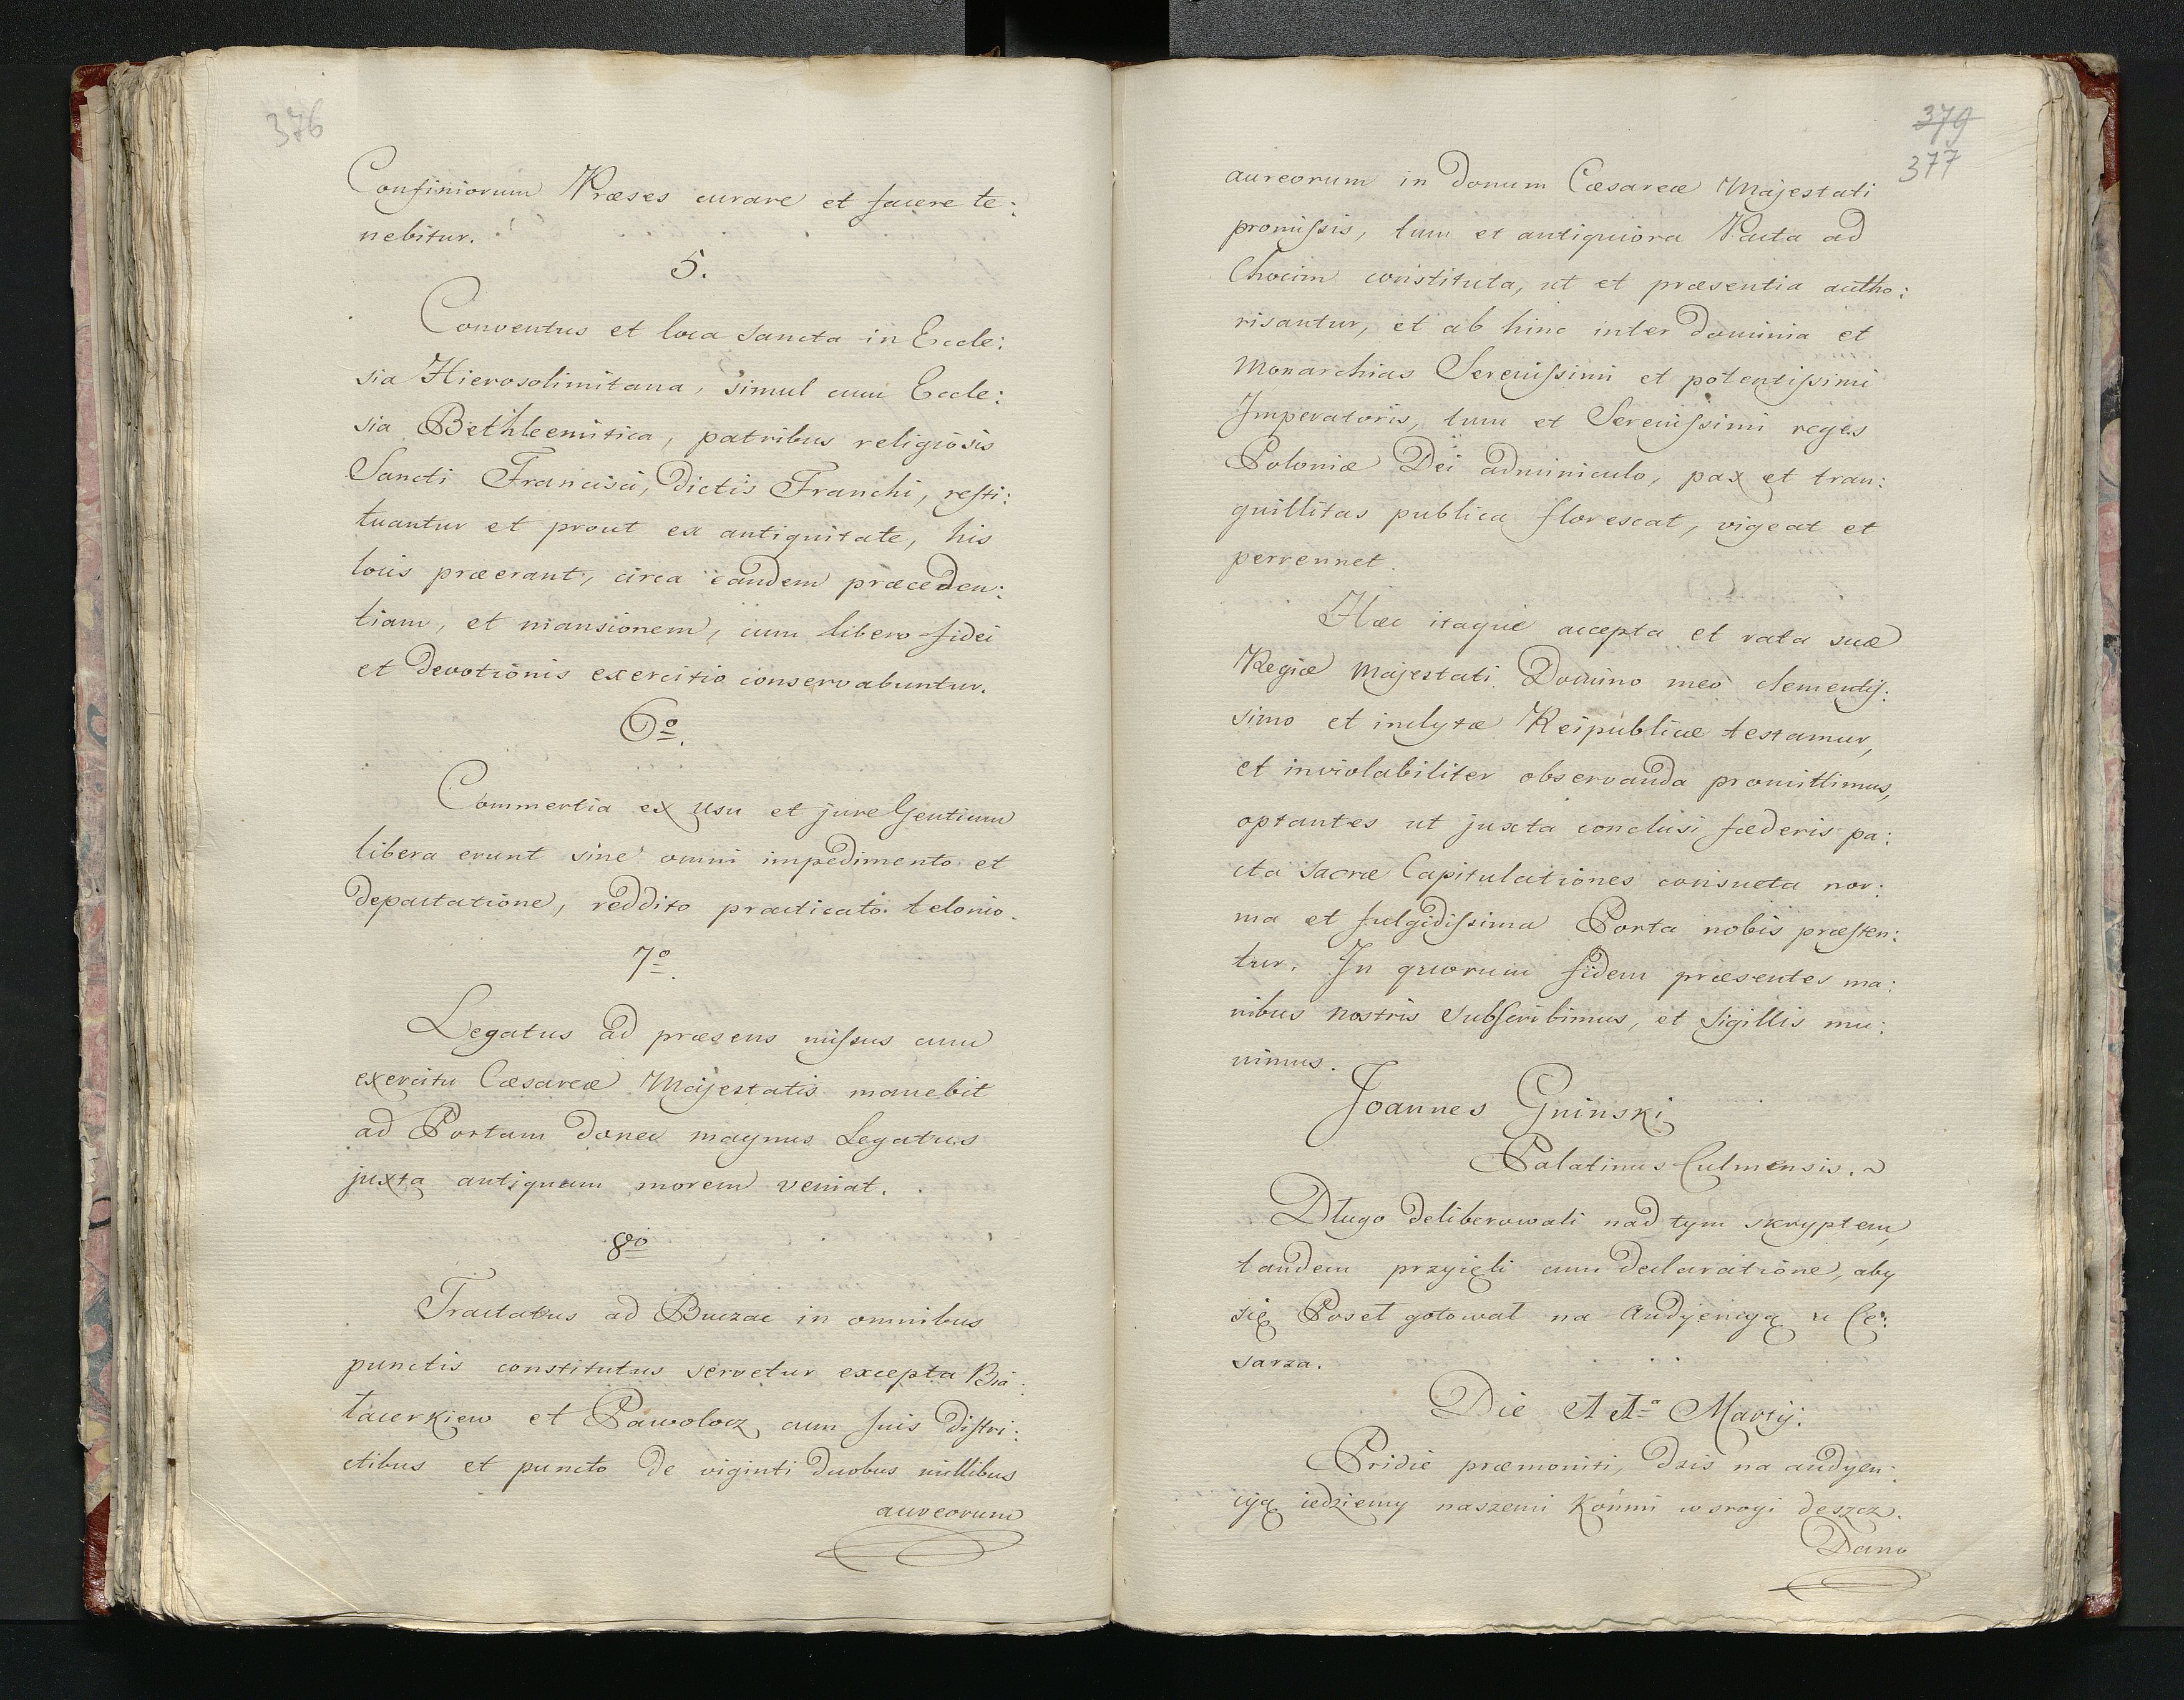 376
Confiniorum Præses curare et facere te:
nebitur.
5.
Conventus et loca sancta in Eccle:
sia Hierosolimitana, simul cum Eccle:
sia Bethleemitica, patribus religiosis
Sancti Francisci, dictis Franchi, resti:
tuantur et prout ex antiquitate, his
locis præerant, circa eandem præceden:
tiam, et mansionem, cum libero fidei
et devotionis exercitio conservabuntur.
6º.
Commertia ex usu et jure Gentium
libera erunt sine omni impedimento et
depactatione, reddito practicato telonio.
7º.
Legatus ad præsens missus cum
exercitu Cæsareæ Majestatis manebit
ad Portam donec magnus Legatus
juxta antiquum morem veniat.
8vo
Tractatus ad Buczac in omnibus
punctis constitutus servetur excepta Bia:
łacerkiew et Pawołocz cum suis distri:
ctibus et puncto de viginti duobus millibus
aureorum
379
377
aureorum in donum Cæsareæ Majestati
promissis, tum et antiquiora Pacta ad
Chocim constituta, ut et præsentia autho:
risantur, et ab hinc inter dominia et
Monarchias Serenissimi et potentissimi
Imperatoris, tum et Serenissimi reges
Poloniæ Dei adminiculo, pax et tran:
quillitas publica florescat, vigeat et
perrennet.
Hæc itaque accepta et rata suæ
Regiæ Majestati Domino meo clementis:
simo et inclytæ Reipublicæ testamur,
et inviolabiliter observanda promittimus,
optantes ut juxta conclusi fæderis pa:
cta sacræ Capitulationes consueta nor:
ma et fulgidissima Porta nobis præsten:
tur. In quorum fidem præsentes ma:
nibus nostris subscribimus, et sigillis mu:
nimus.
Joannes Gninski
Palatinus Culmensis.
Długo deliberowali nad tym skryptem,
tandem przyięli cum declaratione, aby
się Poseł gotował na Audyencyą u Ce:
sarza.
Die 11ª Martij.
Pridie præmoniti, dzis na audyen:
cyą iedziemy naszemi Końmi w srogi deszcz.
Dano